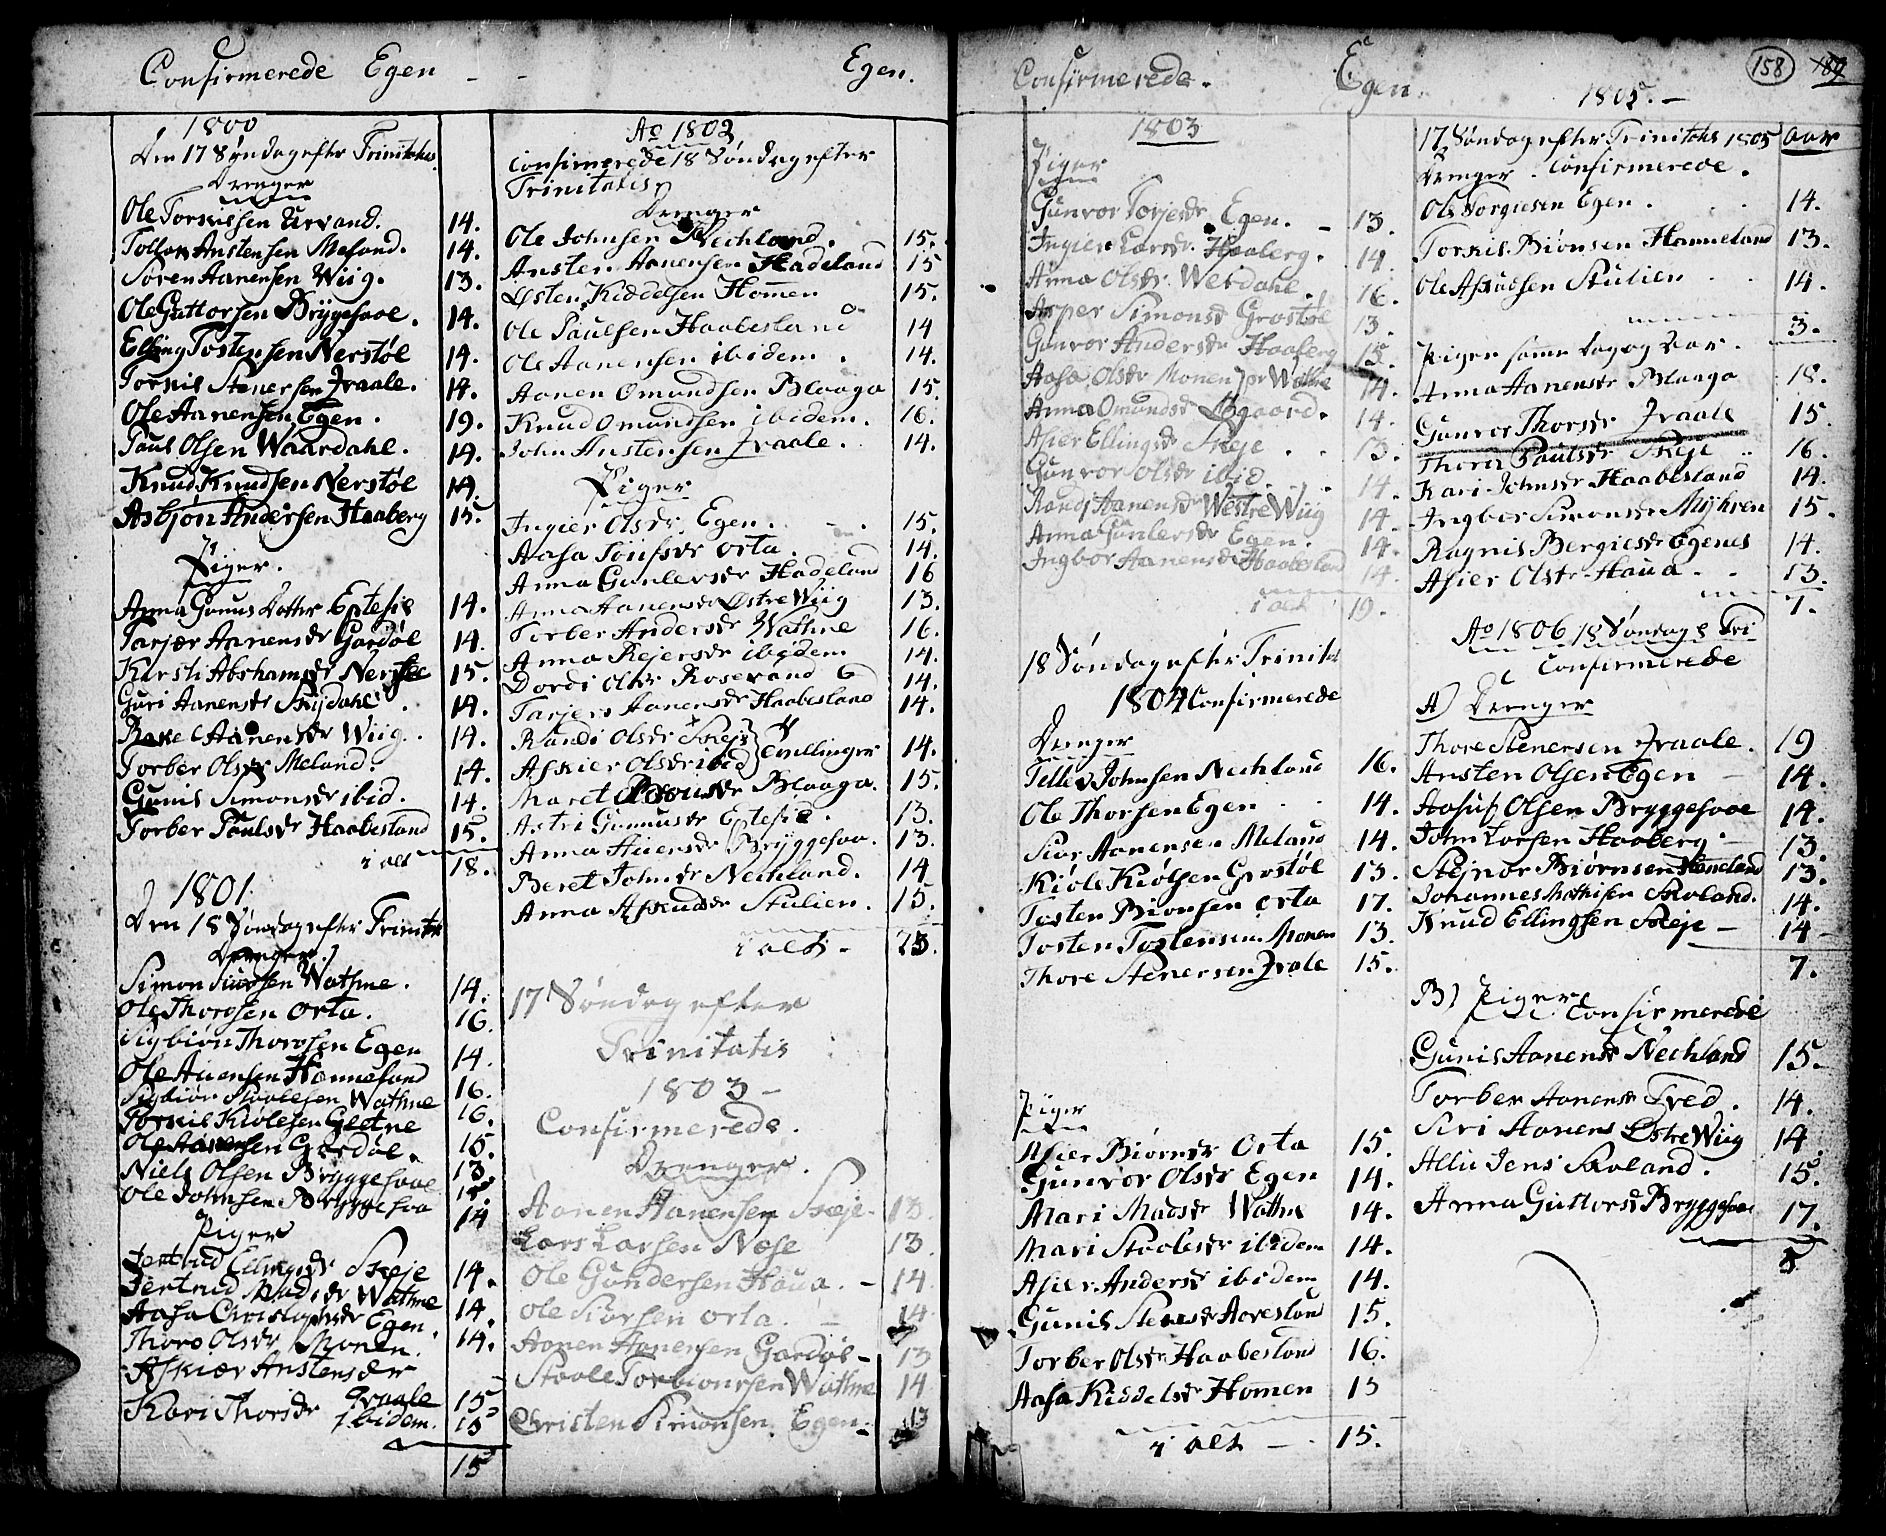 Confirmerede Egen - - Egen.
1800
Den 17 Søndag efter Trinitatis
Drenger
Ole Torkilsen Urvand. 14.
Tollov Anstensen Meland. 14.
Søren Aanensen Wiig. 13.
Ole Guttorsen Bryggesaae. 14.
Elling Tostensen Nerstøl 14.
Torkil Stenersen Fraale. 14.
Ole Aanensen Egen. 19.
Paul Olsen Waardahl. 14.
Knud Knudsen Nerstøl 14.
Asbjøn Andersen Haaberg 15.
Piger.
Anna Gunus Dotter Eptesie 14.
Tarjær Aanensdr Gardøl 14.
Kirsti Abrahamsdr Nerstøl 15.
Guri Aanensdr 14.
Aanensdr Wiig. 14.
Torber Olsdr Meland. 14.
Gunil Simonsdr ibid. 14.
Torber Paulsdr Haabesland 15.
i alt 18.
1801
Den 18 Søndag efter Trinitat
Drenger
Simon Wathne. 14.
Ole Thorsen Orta. 16.
Sigbiøn Thorsen Egen 14.
Ole Hanneland 16.
Sigbiøn Staalesen Wathne 16.
Torkil Kiølesen Gletne 15.
Ole Aanensen Gardøl. 13
Niels Olsen Bryggesaae
Ole Johnsen Bryggesaa 14
Piger
Jertrud Ellingsdr Skeje 14.
Jertrud Madsdr Wathne 14.
Aasa Christophsdr Egen. 14.
Thore Olsdr Monen.
Askiær Anstensdr Fraale 15
Kari Thorsdr Ibidem. 15
15
Ao 1802
Confirmerede 18 Søndag efter
Trinitatis
Drenger
Ole Johnsen Nechland. 15.
Ansten Aanensen Hadeland 15
Østen Kiddelsen Homen 15.
Ole Paulsen Haabesland 14
Ole Aanensen ibidem. 14.
Aanen Omundsen Blaaga 15.
Knud Omundsen ibidem. 16.
John Anstensen Fraale. 14.
Piger
Ingier Olsdr Egen. 15.
Aasa Joufsdr Orta. 14.
Anna Gunlersdr Hadeland 16
Anna Aanensdr Østre Wiig 13.
Torber Andersdr Wathne 16.
Anna Rejersdr ibidem 14.
Dordi Olsdr Rosevand 14.
Tarjer Aanensdr Haabesland 14.
Randi Olsdr Skeje
Askier Olsdr ibid } Tvillinger 14.
Maret Blaaga. 15.
Astri Gunnusdr Eptesie. 13.
Anna Bryggesaa. 13.
Beret Johnsdr Nechland. 14
Anna Aslkudsdr Stulien. 15.
i alt - 23.
17 Søndag efter
Trinitatis
1803 -
Confirmerede.
Drenger.
Aanen Aanensen Skeje 13.
Lars Larsen Nøse 13.
Ole Gundersen Haua. - 14
Ole Siorsen Orta. - 14
Aanen Aanensen Gardøl - 13
Staale Torbiornsen Wathne 14
Christen Simonsen Egen. 13
Confirmerede. Egen. 158 189
1803
Piger
Gunvor Torjesdr Egen. - 13.
Ingier Larsdr Haaberg. 14
Anna Olsdr Werdahl. 16.
Asper Simonsdr Grostøl 13.
Gunvor Andersdr Haaberg 15.
Aasa Olsdr Monen Wathne 14.
Anna Omundsdr Øgaard. 14.
Asier Ellingsdr Skeje . . 13.
Gunvor Olsdr ibid. . . 14.
Randi Aanensdr Westre Wiig 14.
Anna Gunlersdr Egen. 14.
Ingbor Aanensdr Haabesland 14.
i alt 19.
18 Søndag efter Trinitat
1804 Confirmerede
Drenger
Tellev Johnsen Nechland 16.
Ole Thorsen Egen . . 14.
Sior Aanensen Meland 14.
Kiøle Kiølsen Grostøl 13.
Tosten Bionsen Orta 17.
Tosten Tostensen Monen 13.
Thore Stenersen Frale 15.
Piger
Asier Biornsdr Orta 15.
Gunvor Olsdr Egen 14.
Mari Madsdr Wathne 14.
Mari Staalesdr ibidem 14.
Asier Andersdr ibidem 14.
Gunil Stensdr Aaresland 15.
Torber Olsdr Haabesland 16.
Aasa Kiddelsdr Homen 15
i alt - . 15.
1805. -
17 Søndag efter Trinitatis 1805 Aar
Drenger. Confirmerede.
Ole Torgiesen Egen. 14.
Torkil Biønsen Hanneland 13.
Ole Aslkudsen Stulien . 14.
3.
Piger samme Dag og Aar.
Anna Aanensdr Blaaga 18.
Gunvor Thorsdr Fraale 15.
Thora Paulsdr Skeje . 16.
Kari Johnsdr Haabesland 14.
Ingber Simonsdr Myhren 15.
Ragnil Bergiesdr Egenes 14.
Asier Olsdr Haua . . 13.
7.
Ao 1806 18 Søndag e Tri
Confirmerede
A) Drenger
Thore Stenersen Fraale. 19
Ansten Olsen Egen 14.
Aasuf Olsen Bryggesaae 14.
John Larsen Haaberg - 13.
Stejnor Biørnsen Hanneland 13.
Johannes Mathisen Skoland. 14.
Knud Ellingsen Skeje - 14
7.
B) Piger Confirmerede
Gunil Aanensdr Nechland 15.
Torber Aanensdr Tved. 14.
Siri Aanens Østre Wiig 14.
Allu Jens Skoland. 15.
Anna Guttorsd Bryggesaae 17.
5